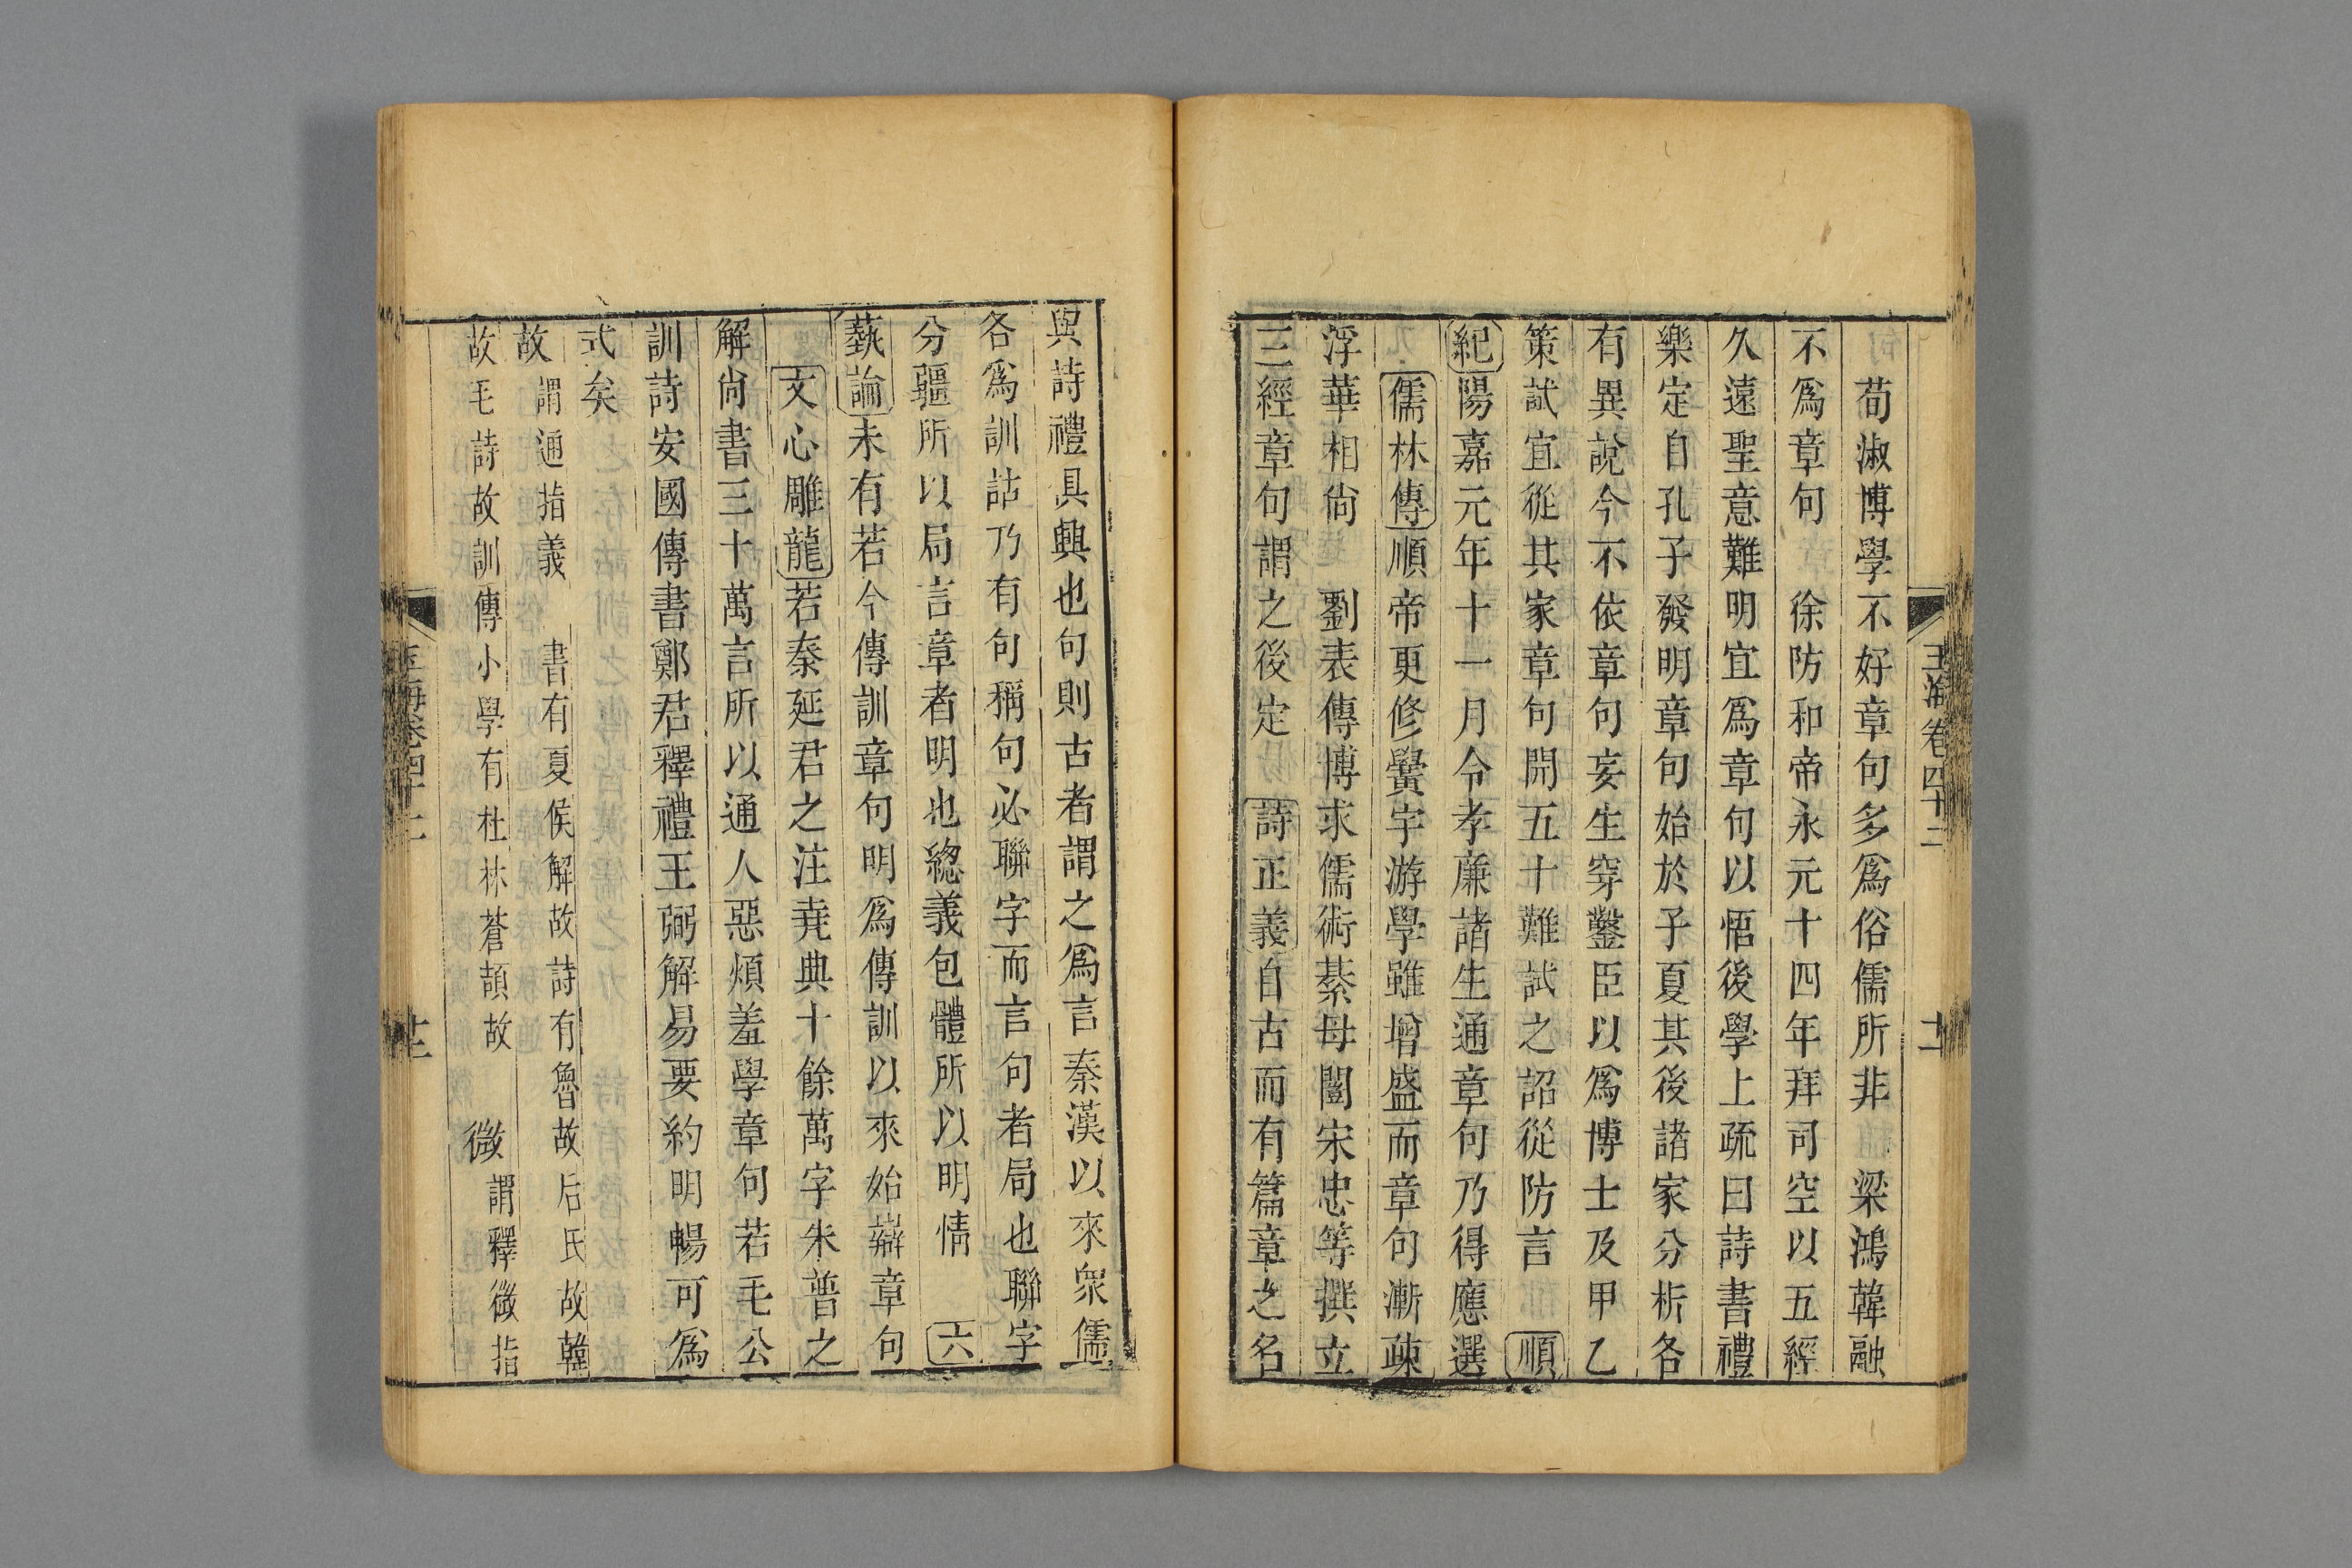 玉海卷四十二
十二
荀淑博學不好章句多爲俗儒所非　梁鴻韓融
不爲章句　徐防和帝永元十四年拜司空以五經
久遠聖意難明宜爲章句以悟後學上疏曰詩書禮
樂定自孔子發明章句始於子夏其後諸家分析各
有異說今不依章句妄生穿鑿臣以爲博士及甲乙
策試宜從其家章句開五十難試之詔從防言　順
紀陽嘉元年十一月令孝廉諸生通章句乃得應選
儒林傳順帝更修黌宇游學雖增盛而章句漸疎
浮華相尚　劉表傳博求儒術綦母闓宋忠等撰立
三經章句謂之後定　詩正義自古而有篇章之名
與詩禮具興也句則古者謂之爲言秦漢以來衆儒
各爲訓詁乃有句稱句必聯字而言句者局也聯字
分疆所以局言章者明也緫義包體所以明情　六
藝論未有若今傳訓章句明爲傳訓以來始辯章句
文心雕龍若秦延君之注堯典十餘萬字朱普之
解尚書三十萬言所以通人惡煩羞學章句若毛公
訓詩安國傳書鄭君釋禮王弼解易要約明暢可爲
式矣
故謂通指義　書有夏侯解故詩有魯故后氏故韓
故毛詩故訓傳小學有杜林蒼頡故　微謂釋微指
玉海卷四十二